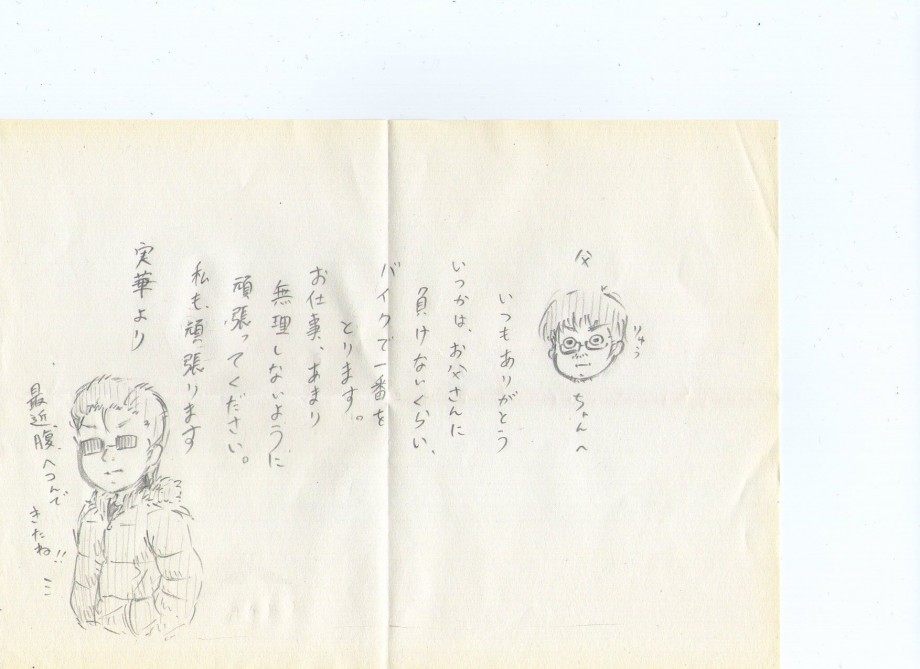 父
りゅう
ちゃんへ
いつもありがとう
いつかは、お父さんに
負けないくらい、
バイクで一番を
とります。
お仕事、あまり
無理しないように
頑張ってください。
私も、頑張ります
実華より
最近、腹、へっこんで
きたね!!